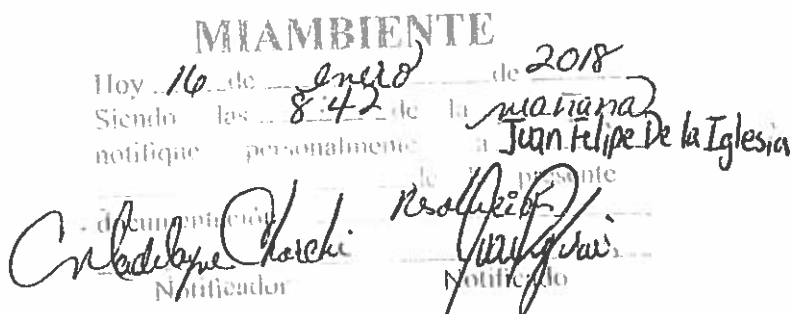 MIAMBIENTE
Hoy 16 de enero de 2018
Siendo las 8:42 de la mañana
notifique personalmente a Juan Felipe De la Iglesia
de la presente
documentación Resolución
Notificador Notificado